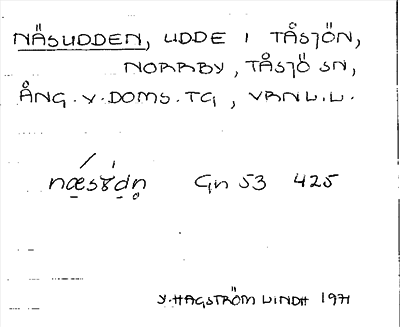 NÄSUDDEN, UDDE I TÅSJÖN,
NORRBY, TÅSJÖ SN,
ÅNG. V. DOMS. TG,
Gn 53 425
Y. HAGSTRÖM LINDH 1971